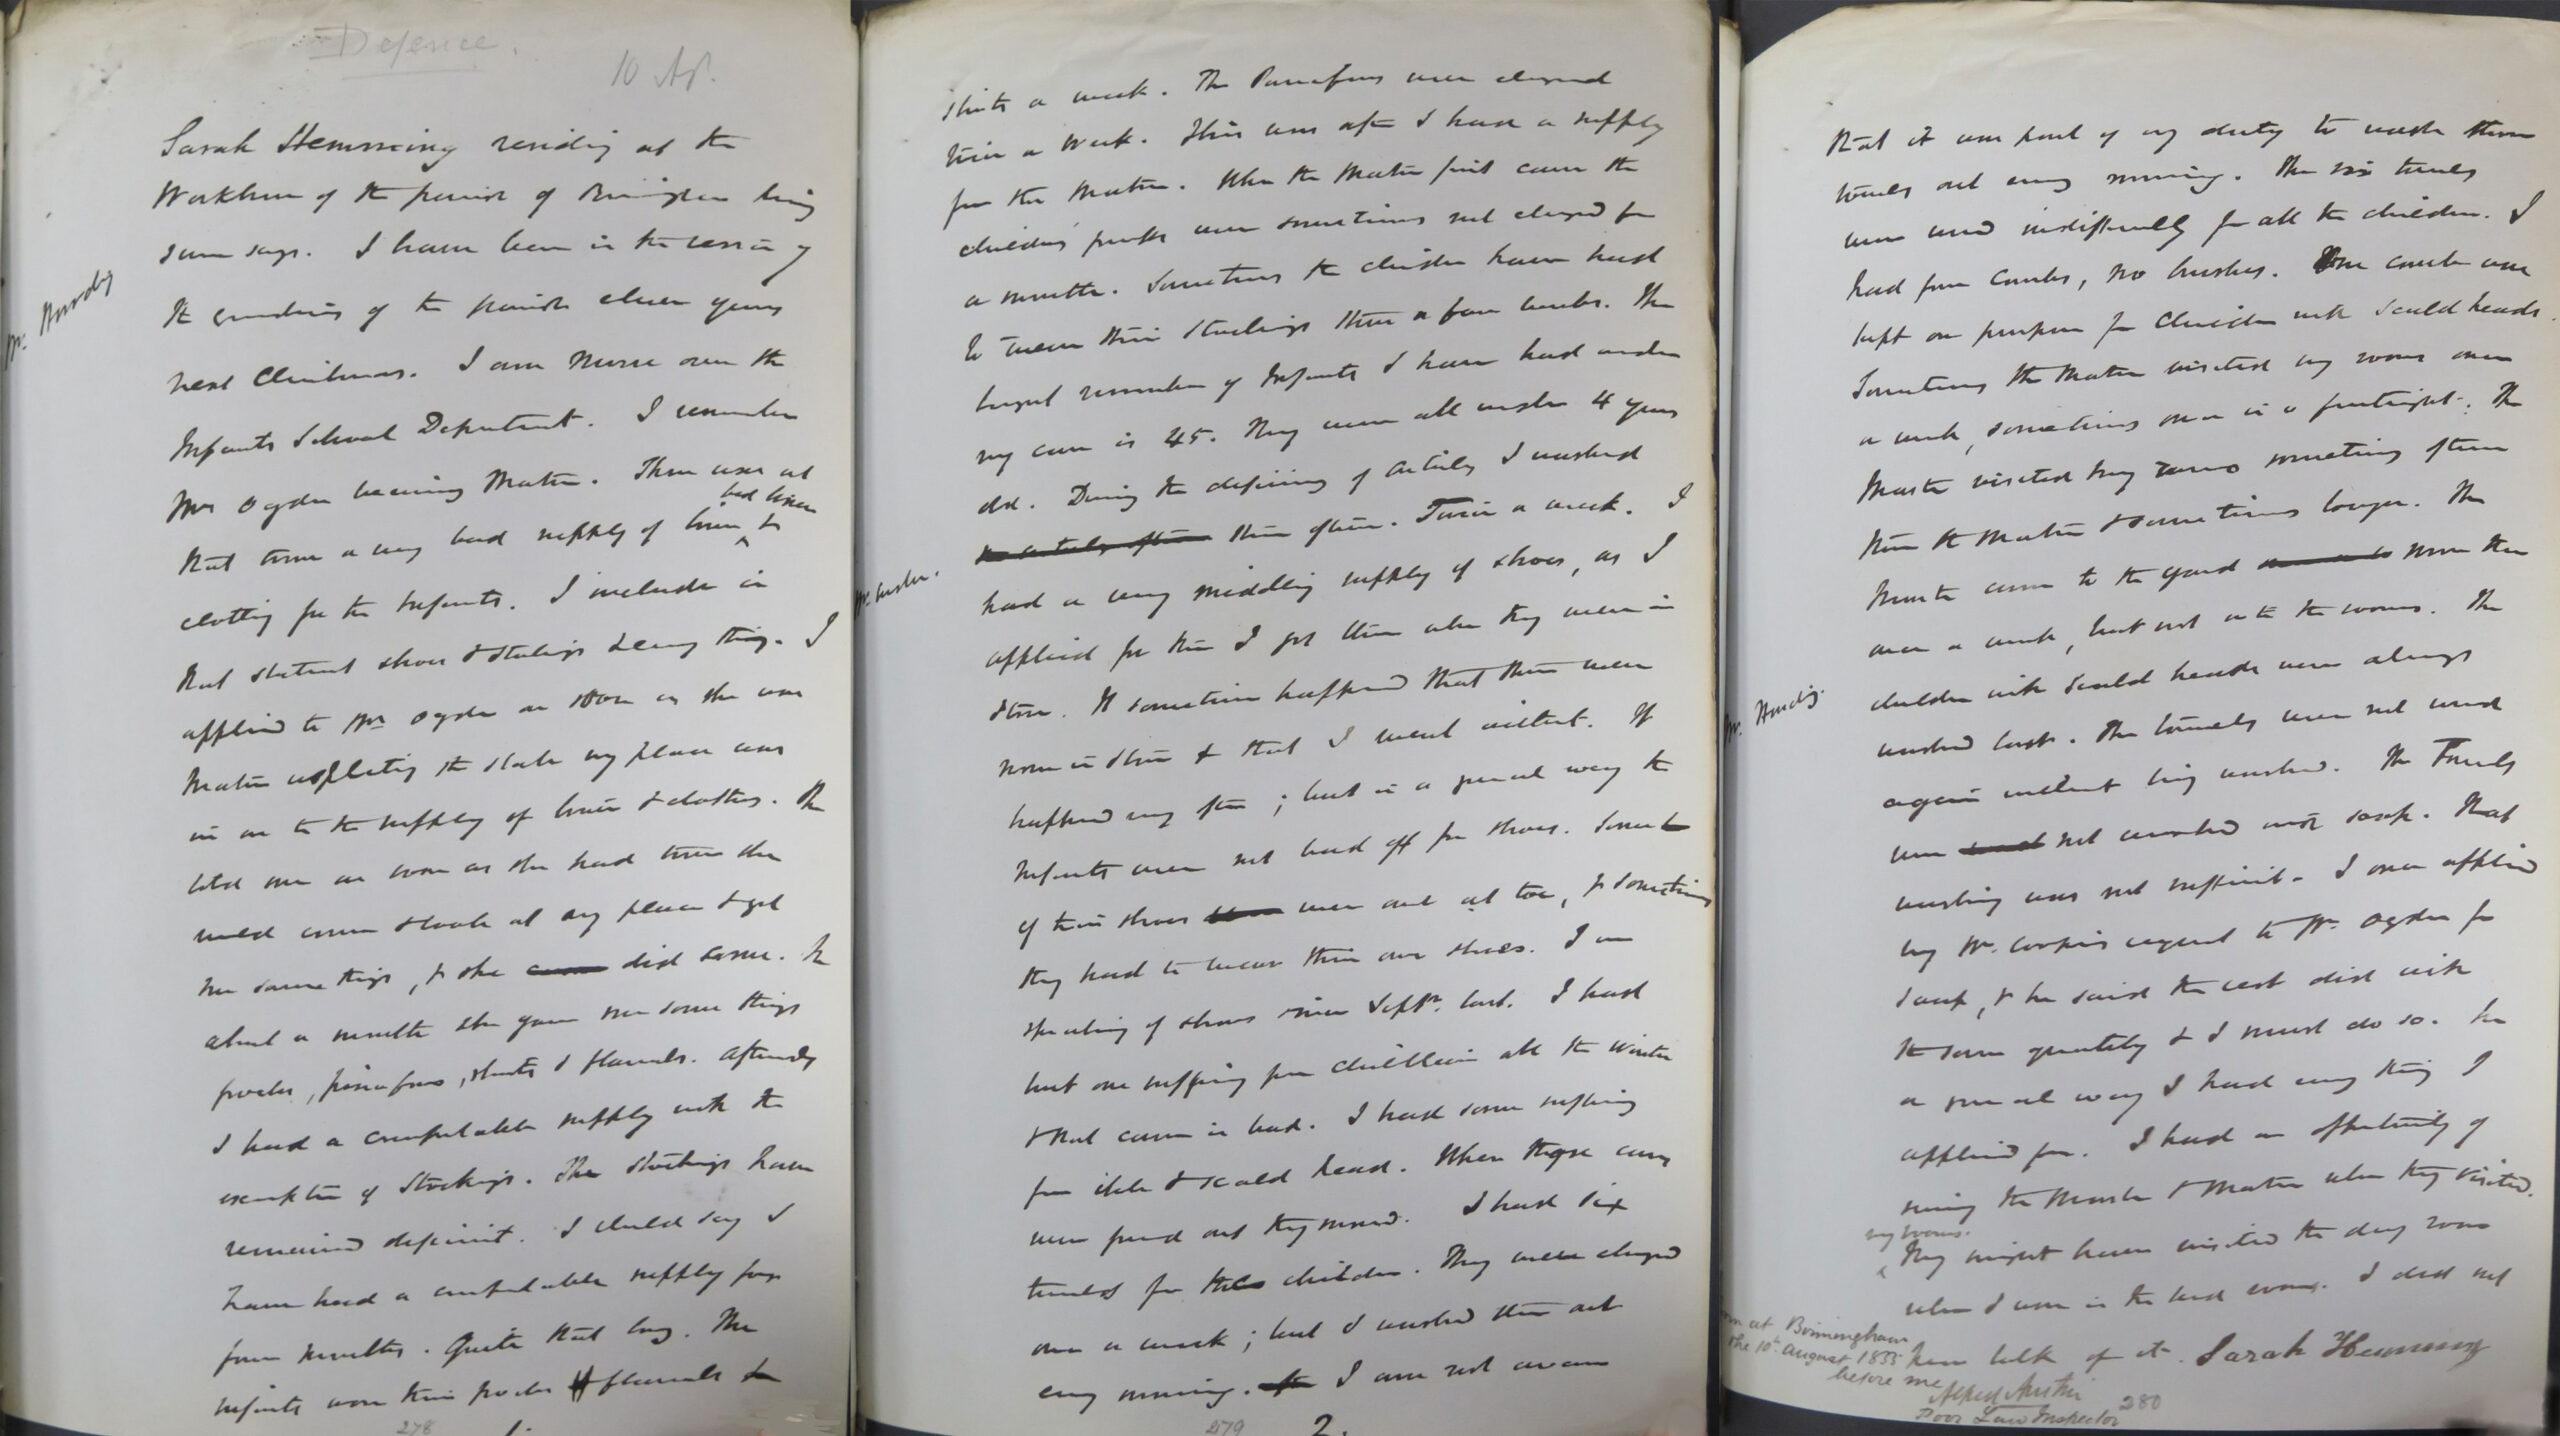 Defence.
10 Ap.
Mr. Hardy
Sarah Hemming residing at the
Workhouse of the parish of Birmingham being
sworn says. I have been in the service of
the guardians of the parish eleven years
next Christmas. I am Nurse over the
Infants School Department. I remember
Mrs Ogden becoming Matron. There was at
bed linen
that time a very bad supply of linen &
clothing for the Infants. I include in
that statement shoes & stockings & every thing. I
applied to Mrs Ogden as soon as she was
Matron respecting the state my place was
in as to the supply of linen & clothes. She
told me as soon as she had time she
would come & look at my place & get
me some things, & she did some. In
about a month she gave me some things
frocks, pinafores, shirts & flannels. Afterwards
I had a comfortable supply with the
exception of Stockings. The Stockings have
remained deficient. I should say I
have had a comfortable supply for
four months. Quite that long. The
Infants wore their frocks & flannels &
278
1.
shirts a week. The Pinafores were changed
twice a week. This was after I had a supply
from the Matron. When the Matron first came the
children's frocks were sometimes not changed for
a month. Sometimes the children have had
to wear their Stockings three or four weeks. The
largest number of Infants I have had under
my care is 45. They were all under 4 years
old. During the deficiency of clothing I washed
them often. Twice a week. I
Mr. Corder.
had a very middling supply of shoes, as I
applied for them I got them when they were in
Store. It sometimes happened that there were
none in Store & that I went without. It
happened very often; but in a general way the
Infants were not bad off for shoes. Some
of their shoes were out at toe, & sometimes
they had to wear their own shoes. I am
speaking of shoes since Septr. last. I had
but one suffering from Chilblain all the Winter
& that came in bad. I had some suffering
from itch & scald head. When these cases
were found out they moved. I had six
towels for the children. They were changed
once a week; but I washed them out
every morning. I am not aware
279
2.
that it was part of my duty to wash them
towels out every morning. The six towels
were used indifferently for all the children. I
had four Combs, no brushes. One comb was
kept on purpose for Children with Scald heads.
Sometimes the Matron visited my rooms once
a week, sometimes once in a fortnight. The
Master visited my rooms sometimes oftener
than the Matron & sometimes longer. The
Master came to the yard more than
once a week, but not into the rooms. The
Mr. Hardy.
children with Scald heads were always
washed last. The towels were not used
again without being washed. The Towels
were not washed with soap. That
washing was not sufficient. I once applied
by Mr. Corder's request to Mr. Ogden for
Soap, & he said the rest did with
the same quantity & I must do so. In
a general way I had every thing I
applied for. I had an opportunity of
seeing the Master & Matron when they visited
my rooms.
They might have visited the day room
when I was in the bed rooms. I did not
hear talk of it. Sarah Hemming
at Birmingham
the 10th August 1855
before me
Alfred Austin
Poor Law Inspector
280